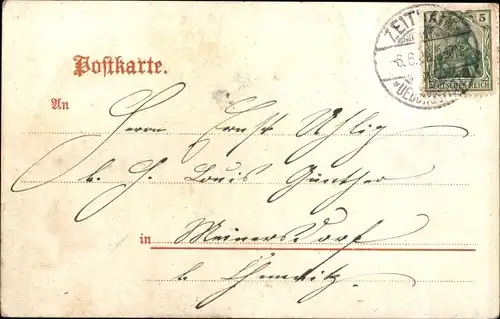 ZEITHAIN
5
-6.6.
DEUTSCHES REICH
Postkarte.
An
Herrn Ernst Uhlig
b. H. Louis Günther
in Meinersdorf
b. Chemnitz.